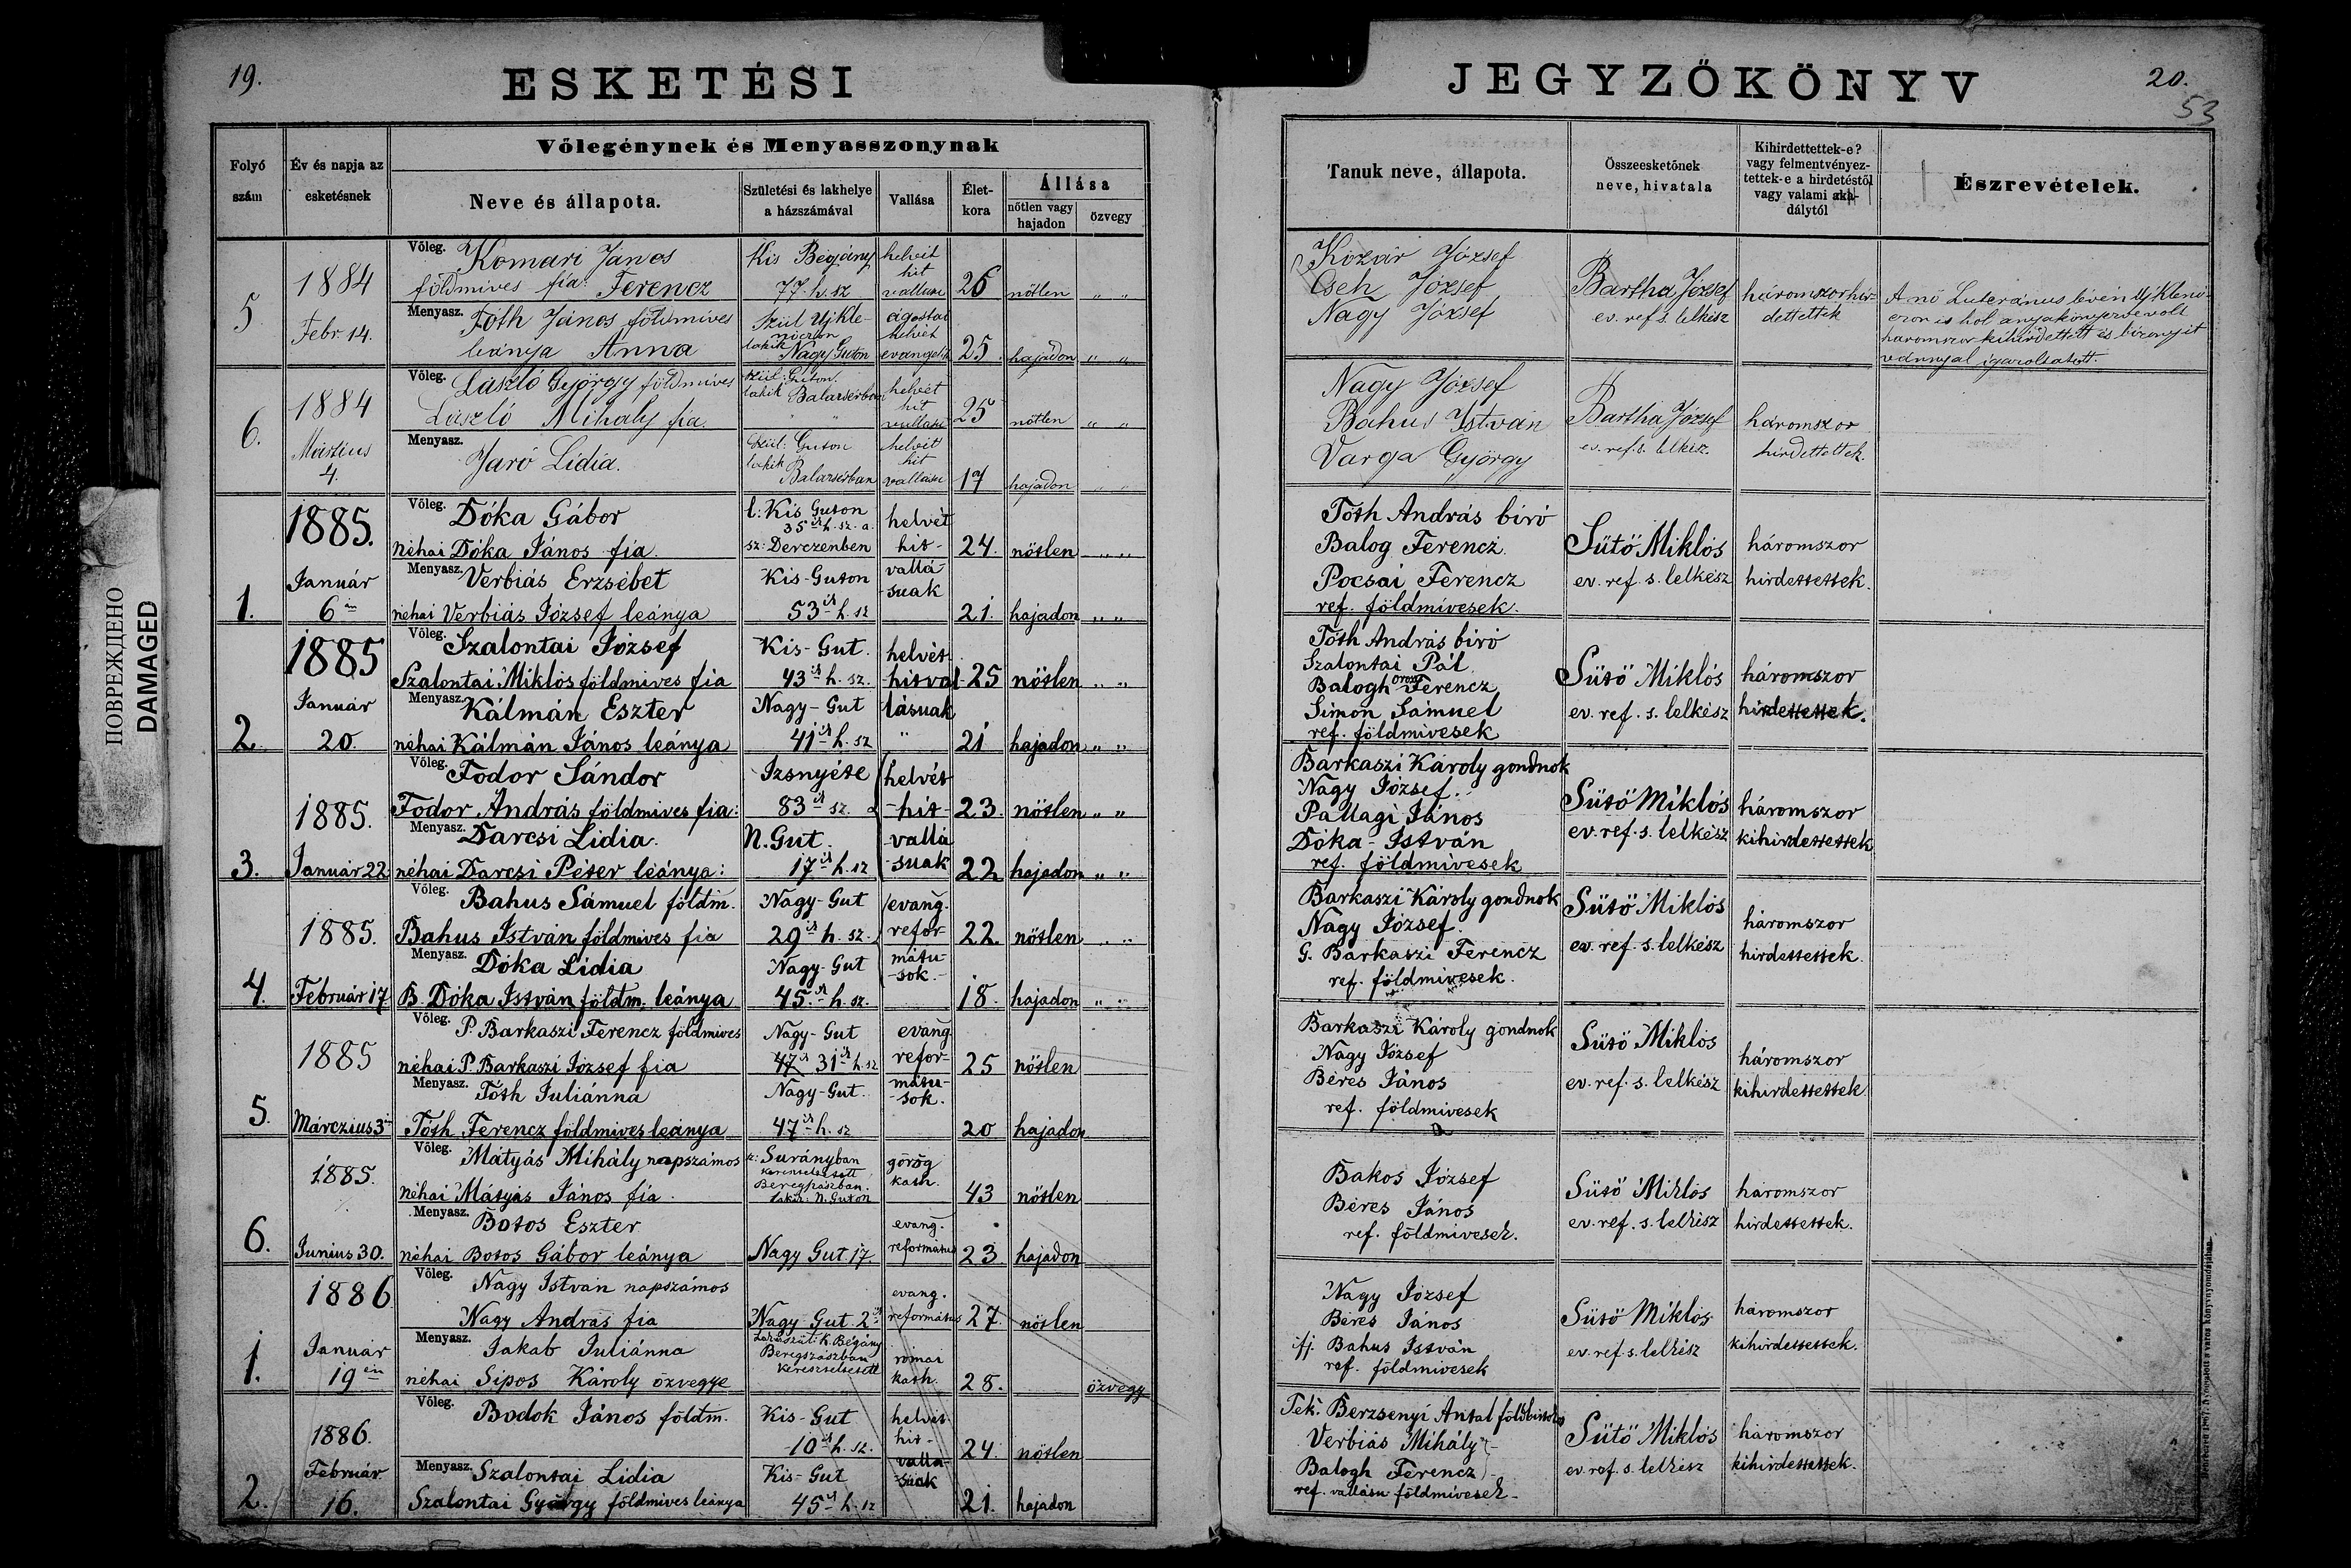 19.
ESKETÉSI
Folyó
szám
Év és napja az
esketésnek
Vőlegénynek és Menyasszonynak
Neve és állapota.
Születési és lakhelye
a házszámával
Vallása
Élet-
kora
Állása
nőtlen vagy
hajadon
özvegy
5
1884
Febr. 14.
Vőleg. Komari János
földmives fia Ferencz
Kis Bégány
77. h. sz
helvét
hit
vallasu
26
nőtlen " "
Menyasz. Tóth János földmives
leánya Anna
Szül Ujkle-
lakik Nagy Guton
ágostai
helvét
evangeli
25.
hajadon " "
6.
1884
Martius
4.
Vőleg. László György földmives
László Mihaly fia.
Szül: Guton.
lakik Balazsérban
helvét
hit
vallasu
25
nőtlen " "
Menyasz.
Jaró Lidia.
Szül: Guton
lakik
Balazsérban
helvét
hit
vallasu
19
hajadon " "
1.
1885.
Január
6 án
Vőleg. Dóka Gábor
néhai Dóka János fia.
l: Kis Guton
35 ik h. sz. a.
sz: Derczenben
helvét
hit-
vallá
-suak
24.
nőtlen " "
Menyasz. Verbiás Erzsébet
néhai Verbiás József leánya
Kis-Guton
53 ik h. sz
21.
hajadon " "
2.
1885
Január
20.
Vőleg. Szalontai József
Szalontai Miklós földmives fia
Kis-Gut.
43 ik h. sz.
helvét
hitval-
lásuak
25
nőtlen " "
Menyasz. Kálmán Eszter
néhai Kálmán János leánya
Nagy-Gut
41 ik h. sz
"
21
hajadon " "
3.
1885.
Január 22
Vőleg. Fodor Sándor
Fodor András földmives fia:
Izsnyéte
83 ik sz.
helvét
-hit-
vallá
-suak
23.
nőtlen " "
Menyasz. Darcsi Lidia.
néhai Darcsi Péter léánya:
N. Gut.
17 ik h. sz
22
hajadon " "
4.
1885.
Február 17
Vőleg. Bahus Sámuel földm.
Bahus István földmives fia
Nagy-Gut
29 ik h. sz.
evang.
refor
mátu-
-sok.
22.
nőtlen " "
Menyasz. Dóka Lidia
B. Dóka István földm. leánya
Nagy-Gut
45. ik h. sz.
18.
hajadon " "
5.
1885
Márczius 3 án
Vőleg. P. Barkaszi Ferencz földmives
néhai P. Barkaszi József fia
Nagy-Gut
47 ik 31 ik h. sz
evang
refor-
mátu-
-sok.
25
nőtlen
Menyasz. Tóth Juliánna
Tóth Ferencz földmives leánya
Nagy-Gut.
47 ik h. sz
20
hajadon
6.
1885.
Junius 30.
Vőleg. Mátyás Mihály napszámos
néhai Mátyás János fia.
sz: Surányban
Beregszászban.
lakik: N. Guton
görög
kath.
43
nőtlen
Menyasz. Botos Eszter
néhai Botos Gábor leánya
Nagy Gut 17.
evang.
református
23
hajadon
1.
1886.
Január
19 én
Vőleg. Nagy István napszámos
Nagy András fia
Nagy-Gut 2 ik
evang.
református
27.
nőtlen
Menyasz. Jakab Juliánna
néhai Sipos Károly özvegye
K. Bégány
Beregszászban
kereszteltetett
római
kath.
28.
özvegy
2.
1886.
Február
16.
Vőleg. Bodok János földm.
Kis-Gut
10 ik h. sz.
helvét
hit-
vallá-
suak
24.
nőtlen
Menyasz. Szalontai Lidia
Szalontai György földmives leánya
Kis-Gut
45 ik h. sz
21.
hajadon
JEGYZŐKÖNYV
20.
53
Tanuk neve, állapota.
Összeesketőnek
neve, hivatala
Kihirdettettek-e?
vagy felmentvényez-
tettek-e a hirdetéstől
vagy valami aka-
dálytól
Észrevételek.
Kozár József
Cseh József
Nagy József
Bartha József
ev. ref s. lelkész
háromszor hir-
dettettek
A nő Luteránus lévén Ujklenó-
háromszor kihirdettett és bizonyit
vánnyal igazoltatott.
Nagy József
Bahus István
Varga György
Bartha József
ev. ref. s. lelkész.
háromszor
hirdettettek.
Tóth András biró
Balog Ferencz.
Pocsai Ferencz
ref. földmivesek.
Sütő Miklós
ev. ref. s. lelkész
háromszor
hirdettettek.
Tóth András biró
Szalontai Pál.
Balogh orosz Ferencz
Simon Sámuel
ref. földmivesek
Sütő Miklós
ev. ref. s. lelkész
háromszor
hirdettettek.
Barkaszi Károly gondnok
Nagy József.
Pallagi János
Dóka-István
ref. földmivesek
Sütő Miklós
ev. ref. s. lelkész
háromszor
kihirdettettek
Barkaszi Károly gondnok
Nagy József.
G. Barkaszi Ferencz
ref. földmivesek.
Sütő Miklós
ev. ref. s. lelkész
háromszor
hirdettettek.
Barkaszi Károly gondnok
Nagy József
Béres János
ref. földmivesek
Sütő Miklós
ev. ref. s. lelkész
háromszor
kihirdettettek
Bakos József
Béres János
ref. földmivesek.
Sütő Miklós
ev. ref. s. lelkész
háromszor
hirdettettek.
Nagy József
Béres János
ifj. Bahus István
ref. földmivesek
Sütő Miklós
ev. ref. s. lelkész
háromszor
kihirdettettek.
Tek. Berzsenyi Antal földbirtokos
Verbiás Mihály
Balogh Ferencz
ref. vallásu földmivesek
Sütő Miklós
ev. ref. s. lelkész
háromszor
kihirdettettek.
ПОВРЕЖДЕНО
DAMAGED